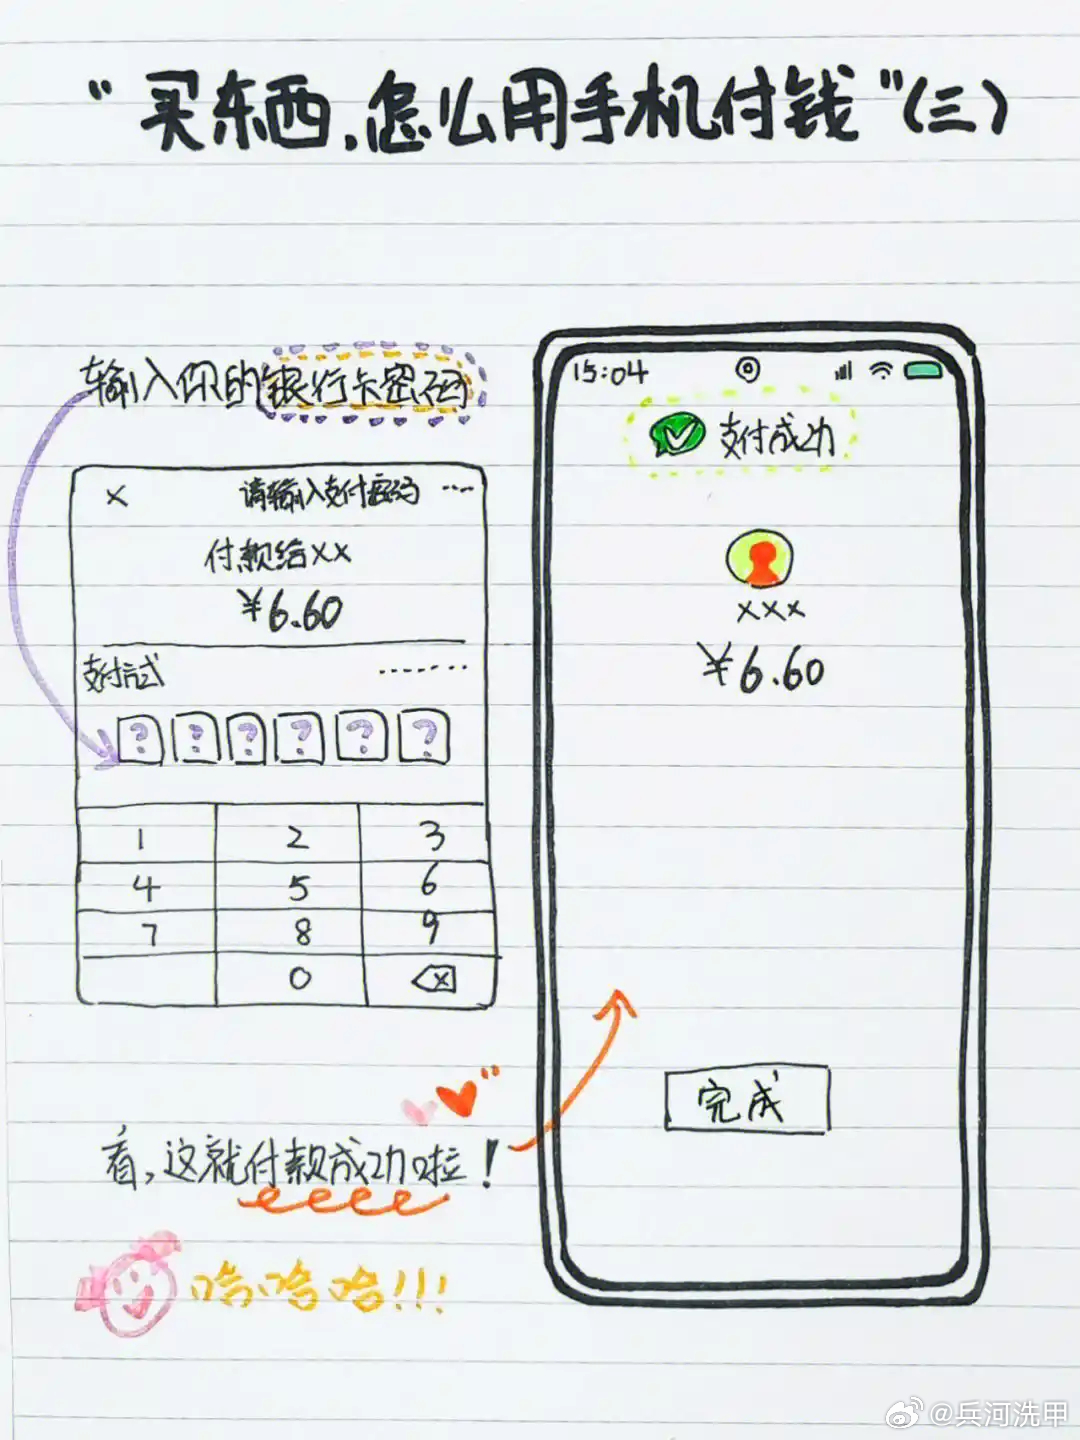 “买东西,怎么用手机付钱”(三)
输入你的银行卡密码
× 请输入支付密码 ····
付款给××
¥6.60
支付方式 ·······
? ? ? ? ? ?
1 2 3
4 5 6
7 8 9
0 ×
15:04
支付成功
×××
¥6.60
完成
看,这就付款成功啦!
哈哈哈!!!
@兵河洗甲